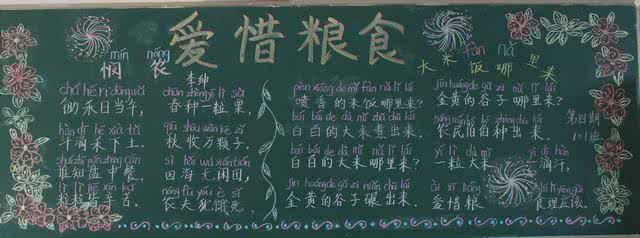 爱惜粮食
mǐn nóng
悯 农
李绅
chú hé rì dāng wǔ
锄禾日当午,
hàn dī hé xià tǔ
汗滴禾下土.
shuí zhī pán zhōng cān
谁知盘中餐,
lì lì jiē xīn kǔ
粒粒皆辛苦.
chūn zhǒng yí lì sù
春种一粒粟,
qiū shōu wàn kē zǐ
秋收万颗子.
sì hǎi wú xián tián
四海无闲田,
nóng fū yóu è sǐ
农夫犹饿死.
fàn nǎ
大米饭哪里来
pēn xiāng de mǐ fàn nǎ lǐ lái
喷香的米饭哪里来?
bái bái de dà mǐ zhǔ chū lái
白白的大米煮出来.
bái bái de dà mǐ nǎ lǐ lái
白白的大米哪里来?
jīn huáng de gǔ zi niǎn chū lái
金黄的谷子碾出来.
jīn huáng de gǔ zi nǎ lǐ lái
金黄的谷子哪里来?
nóng mín bó bo zhòng chū lái
农民伯伯种出来.
yí lì dà mǐ yì dī hàn
一粒大米 一滴汗,
ài xī liáng shí lǐ yīng gāi
爱惜粮 食理应该.
第四期
1-1班